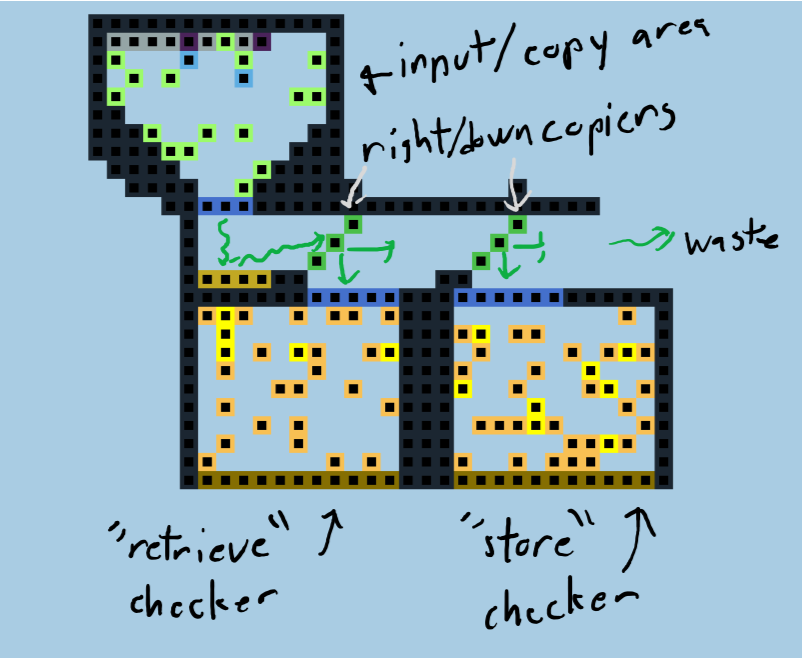 input/copy area
right/down copiers
waste
"retrieve"
checker
"store"
checker